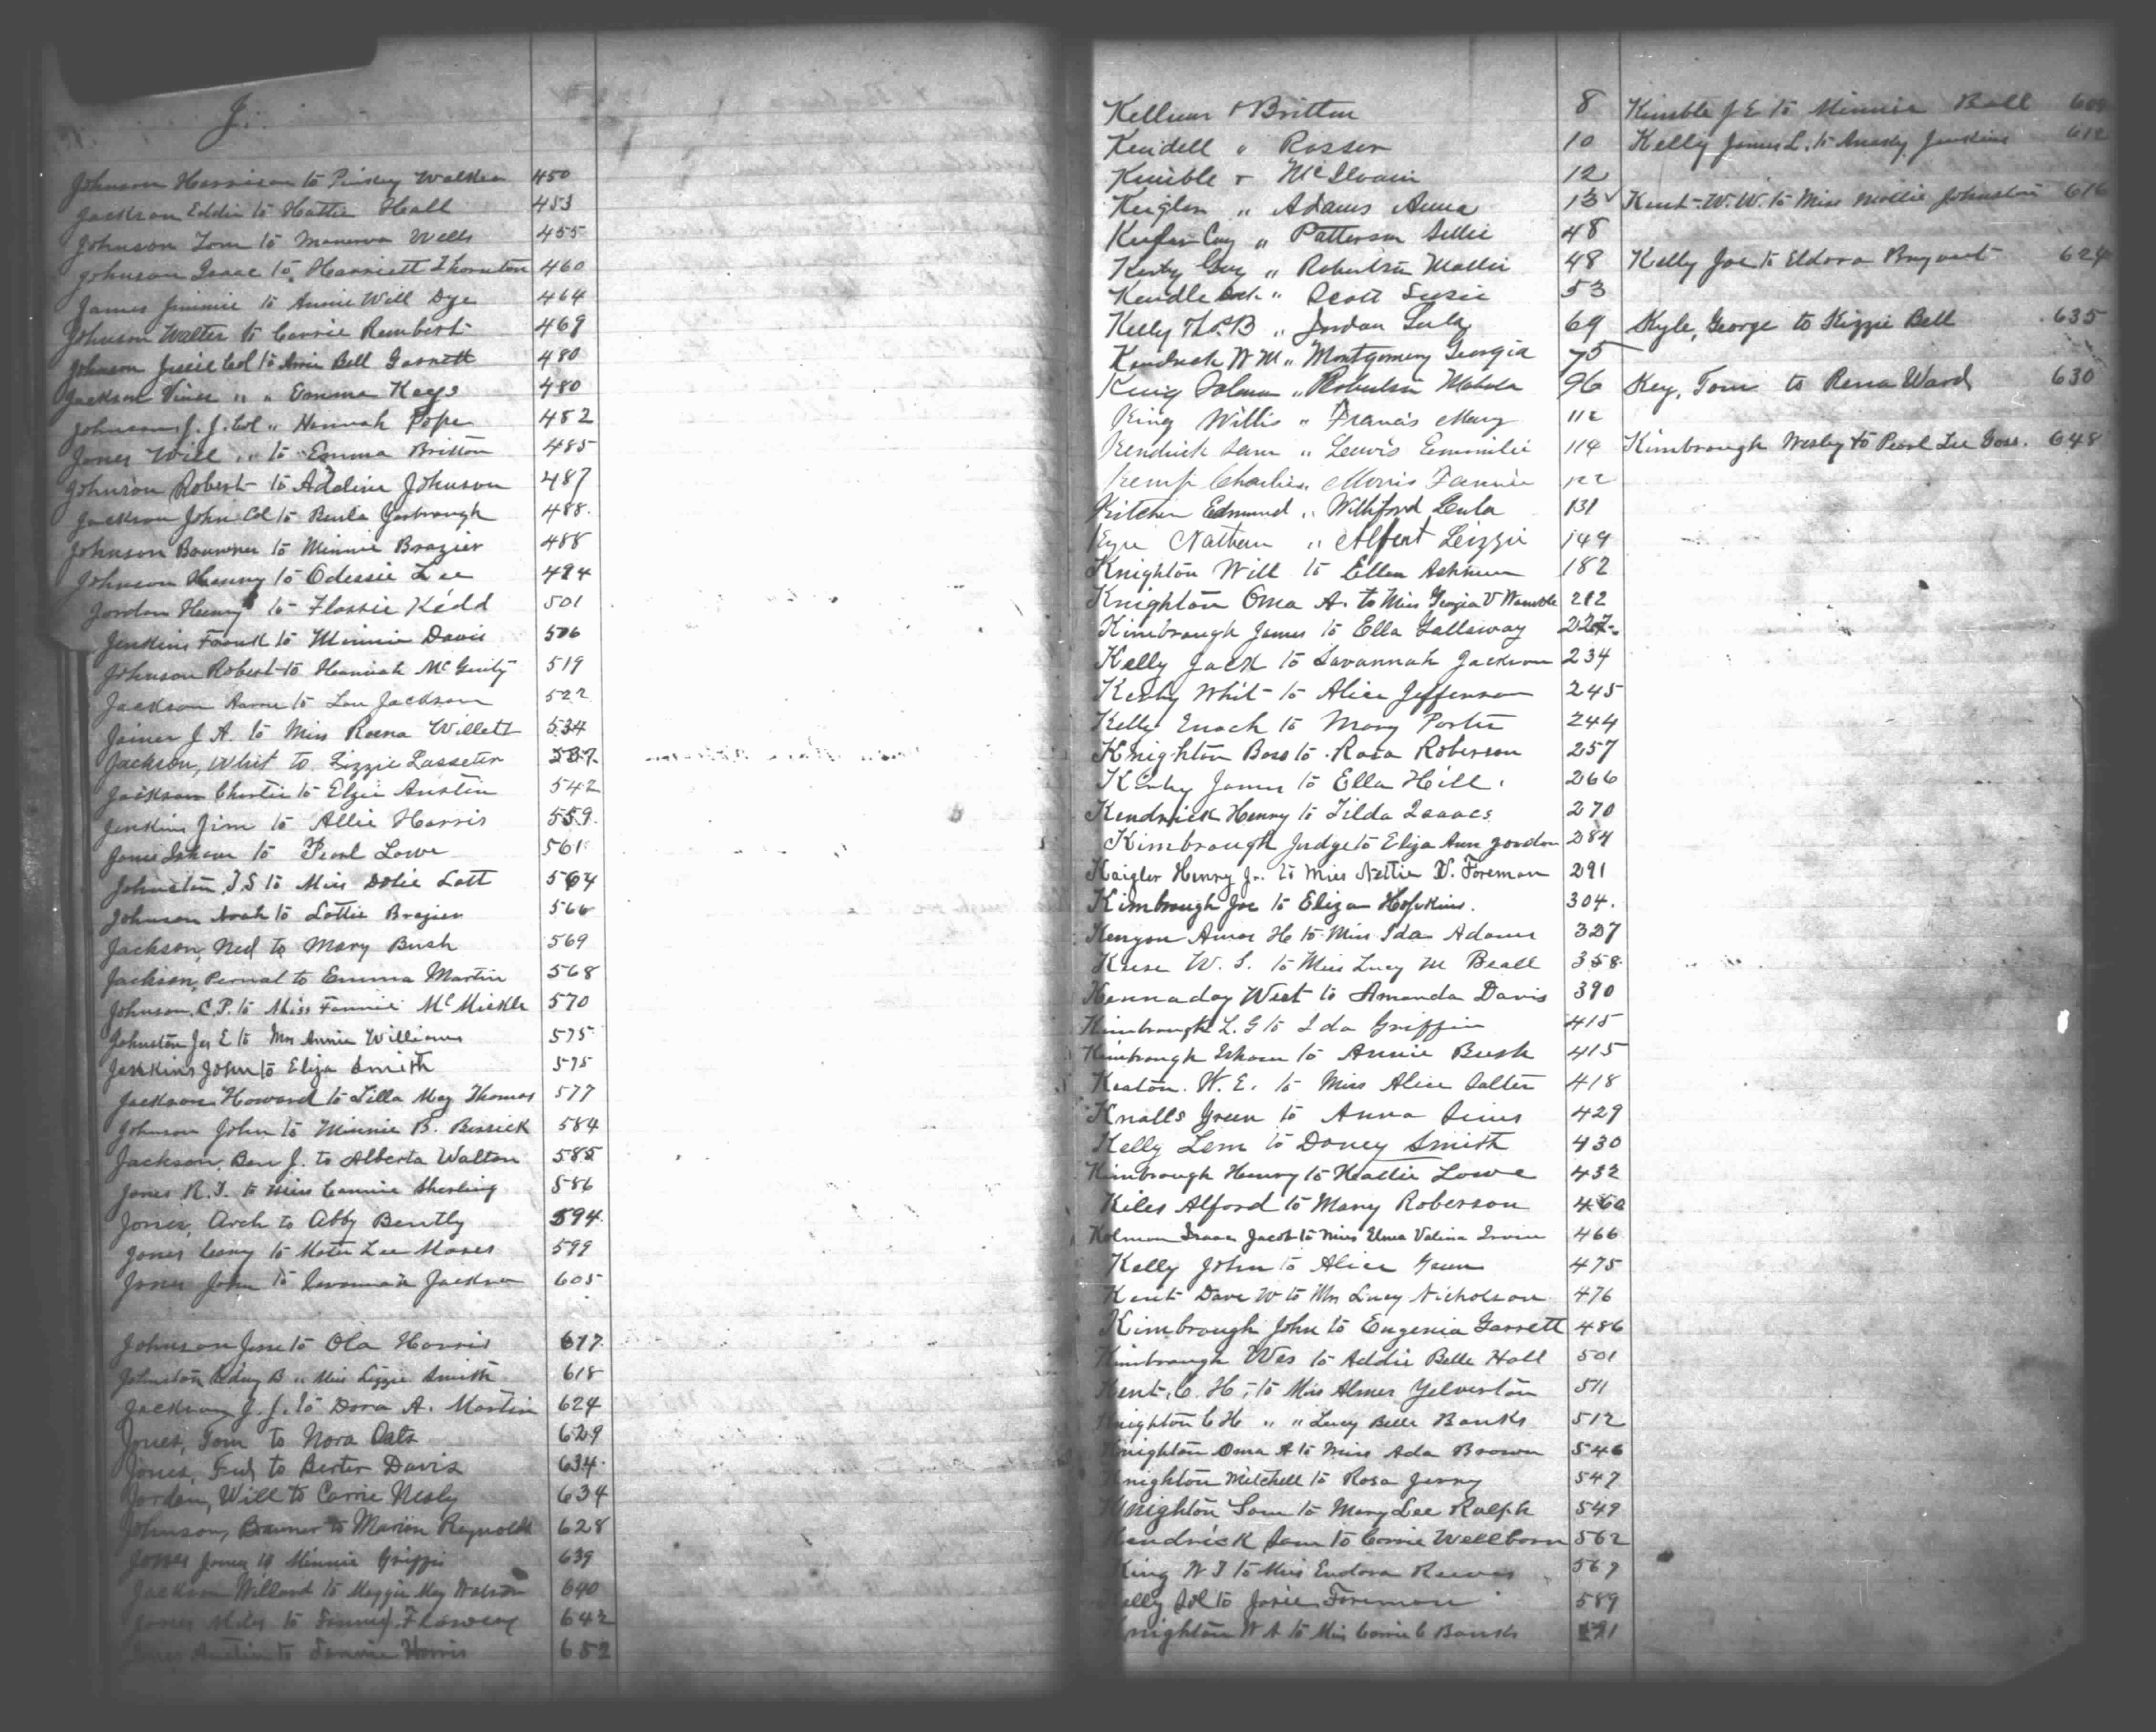 J.
Johnson Harrison to Pinkey Walker 450
Jackson Eddie to Hattie Hall 453
Johnson Tom to Manerva Wells 455
Johnson Isaac to Harriett Thornton 460
James Jimmie to Annie Will Dye 464
Johnson Walter to Carrie Rembert 469
Johnson Jessie Col to Annie Bell Garrett 480
Jackson " " Emma Keys 480
Johnson J. J. Col " Hannah Pope 482
Jones Will " to Emma Britton 485
Johnson Robert to Adeline Johnson 487
Jackson John Col to Beula Yarbrough 488
Johnson to Minnie Brazier 488
Johnson Henry to Odessie Lee 494
Jordan Henry to Flossie Kidd 501
Jenkins Frank to Minnie Davis 506
Johnson Robert to Hannah McGinty 519
Jackson to Lou Jackson 522
Joiner J A. to Miss Rosna Willett 534
Jackson, Whit to Lizzie Lasseter 537
Jackson Chestie to Elzie Austin 542
Jenkins Jim to Allie Harris 559
Jones Isham to Pearl Lowe 561
Johnston J. S to Miss Dolie Lott 564
Johnson Noah to Lottie Brazier 566
Jackson, Ned to Mary Bush 569
Jackson, Pernal to Emma Martin 568
Johnson, C. P. to Miss Fannie McMickle 570
Johnston Jas E to Mrs Annie Williams 575
Jenkins John to Eliza Smith 575
Jackson Howard to Lilla May Thomas 577
Johnson John to Minnie B. Bessick 584
Jackson, Ben J. to Alberta Walton 585
Jones R. T. to Miss Cammie Sherling 586
Jones, Arch to Abby Bently 594
Jones to Katie Lee Moses 599
Jones John to Savannah Jackson 605
Johnson Jesse to Ola Harris 617
Johnston B " Miss Lizzie Smith 618
Jackson J. J. to Dora A. Martin 624
Jones, Tom to Nora Oats 629
Jones, Fred to Berter Davis 634
Jordan, Will to Carrie Nesly 634
Johnson, to Marion Reynolds 628
Jones James to Minnie Griffin 639
Jackson Willard to Maggie May Watson 640
Jones to Flowers 642
Jones Austin to Fannie Harris 652
Kellum & Britton 8
Kendell " Rosser 10
Kimble & McIlvain 12
Keiglar " Adams Anna 13
" Patterson Sellie 48
Kirby Guy " Robertson Mollie 48
Kendle " Scott Susie 53
Kelly Thos. B " Jordan Lula 69
Kendrick W M " Montgomery Georgia 75
King Solomon " 96
King Willis " Francis Mary 112
Kendrick Sam " Lewis Emmilie 114
Kemp Charlie " Morris Fannie 122
Kitchen Edmund " Williford Leula 131
Nathan " Albert Lizzie 149
Knighton Will to Ellen 182
Knighton Oma A. to Miss Georgia V Womble 212
Kimbrough James to Ella Gallaway 227
Kelly Jack to Savannah Jackson 234
Kirby Whit to Alice Jefferson 245
Kelly Enoch to Mary Porter 244
Knighton Boss to Rosa Roberson 257
Kirby James to Ella Hill 266
Kendrick Henry to Tilda Isaacs 270
Kimbrough Judge to Eliza Ann Jordan 284
Kaigler Henry Jr. to Miss Nettie V. Foreman 291
Kimbrough Joe to Eliza Hopkins. 304.
Kenyon Amos H to Miss Ida Adams 327
W. S. to Miss Lucy M Beall 358
Kennaday West to Amanda Davis 390
Kimbrough L. G to Ida Griffin 415
Kimbrough Isham to Annie Bush 415
Keaton. W. E. to Miss Alice Salter 418
Knalls Green to Anna Sims 429
Kelly Lem to Doney Smith 430
Kimbrough Henry to Hattie Lowe 432
Kiles Alford to Mary Roberson 460
Kolman Isaac Jacob to Miss Elma Valina 466
Kelly John to Alice Green 475
Kent Dave W to Mrs Lucy Nicholson 476
Kimbrough John to Eugenia Garrett 486
Kimbrough Wes to Addie Belle Hall 501
Kent, C. H. to Miss Almer Yelverton 511
Knighton C H " " Lucy Belle Banks 512
Knighton Oma A to Miss Ada Brown 546
Knighton Mitchell to Rosa Jenny 547
Knighton Sam to Mary Lee Ralph 549
Kendrick Sam to Corrie Wellborn 562
King W T to Miss Eudora Reeves 567
Kelly Sol to Josie Foreman 589
Knighton W A to Miss Carrie C Banks 591
Kimble J. E. to Minnie Ball
Kelly James L. to Jenkins 612
Kent W. W. to Miss Mollie Johnston 616
Kelly Joe to Eldora Bryant 624
Kyle, George to Kizzie Bell 635
Key, Tom to Rena Ward 630
Kimbrough Wesley to Pearl Lee Goss. 648